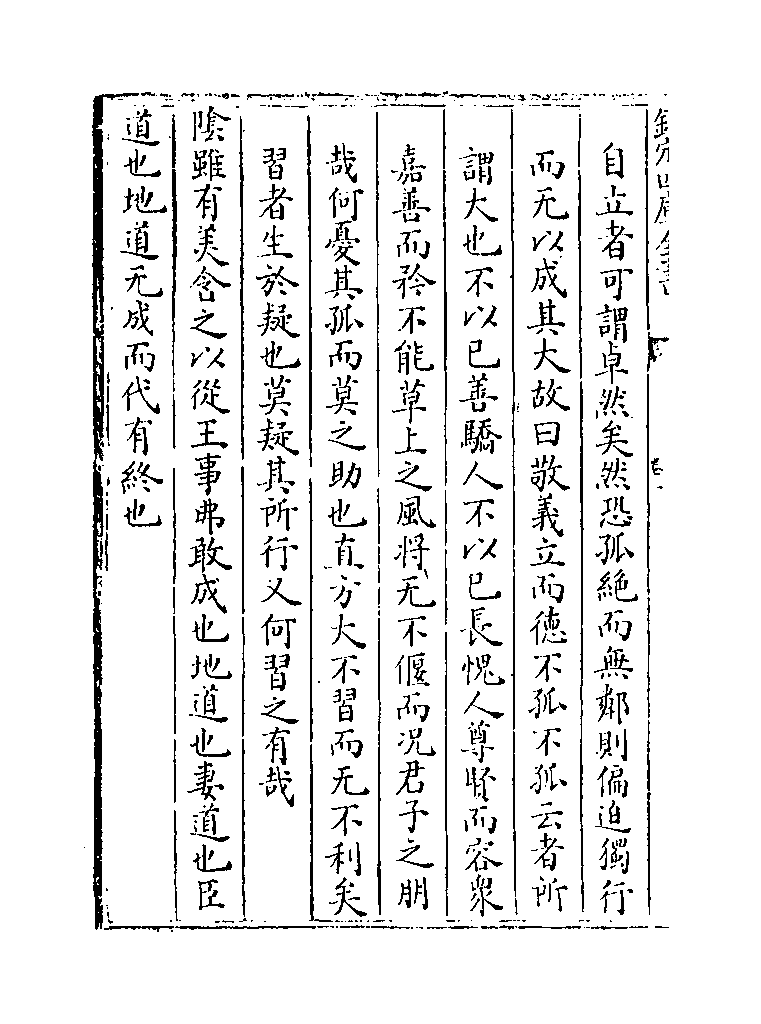 欽定四庫全書
卷一
自立者可謂卓然矣然恐孤絶而無鄰則偏迫獨行
而无以成其大故曰敬義立而徳不孤不孤云者所
謂大也不以已善驕人不以已長愧人尊賢而容衆
嘉善而矜不能草上之風將无不偃而况君子之朋
哉何憂其孤而莫之助也直方大不習而无不利矣
習者生於疑也莫疑其所行又何習之有哉
隂雖有美含之以從王事弗敢成也地道也妻道也臣
道也地道无成而代有終也